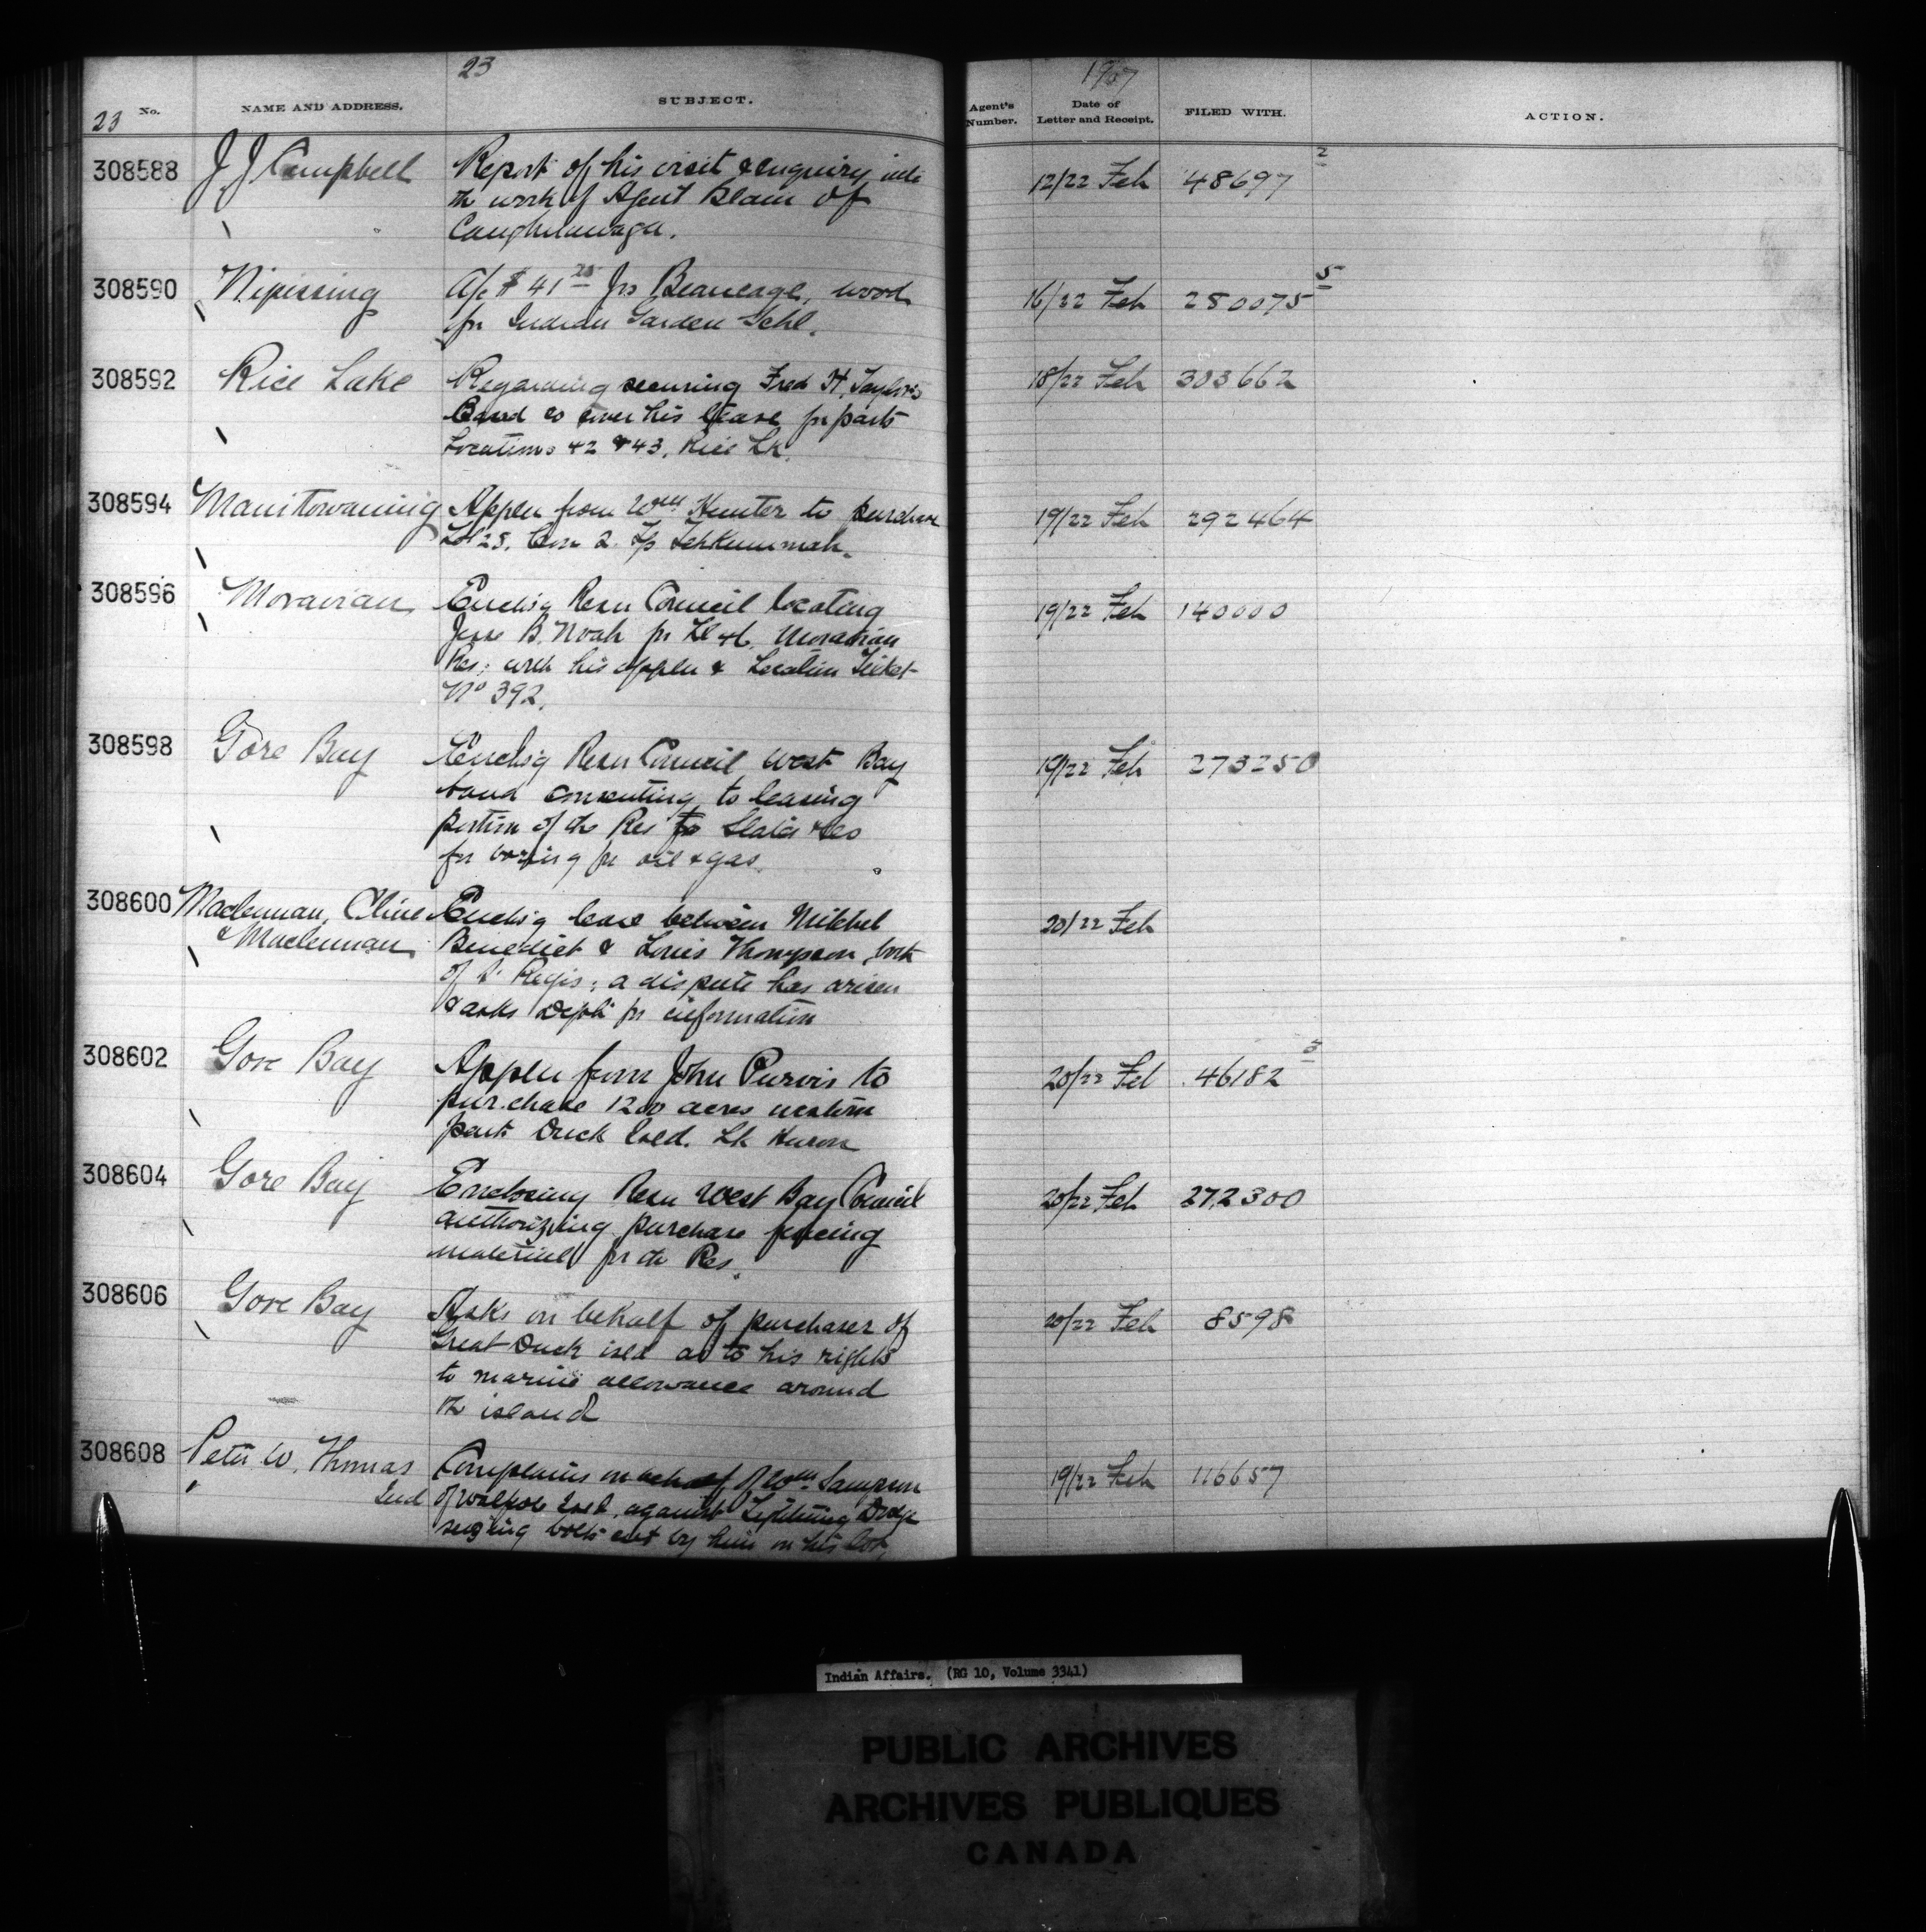 23
1907
23 No. NAME AND ADDRESS. SUBJECT.
Agent's Number. Date of Letter and Receipt. FILED WITH. ACTION.
308588 J J Campbell Report of his visit & enquiry into 12/22 Feb 48697 2
the work of Agent Blain of
Caughnawaga.
308590 Nipissing A/c $41 25 Jno Beaucage, wood 16/22 Feb 280075 5
for Indian Garden Schl.
308592 Rice Lake Regarding securing Fred H. Taylor's 18/22 Feb 303662
Band to cover his lease for parts
Locations 42 & 43, Rice Lk.
308594 Manitowaning Applen from Wm Hunter to purchase 19/22 Feb 292464
Lot 25. Con 2. Tp Tehkummah.
308596 Moravian Enclsg Resn Council locating 19/22 Feb 140000
Jesse B. Noah for Moravian
Res; with his applen & Location Ticket
No 392.
308598 Gore Bay Enclsg Resn Council West Bay 19/22 Feb 273250
band consenting to leasing
portion of the Res to Slater & Co
for boring for oil & gas.
308600 Maclennan, Cline Enclsg lease between Mitchel 20/22 Feb
& Maclennan Benedict & Louis Thompson, both
of St Regis; a dispute has arisen
& asks Dept for information
308602 Gore Bay Applen from John Purvis to 20/22 Feb 46182 3
purchase 1200 acres western
part Duck Isld. Lk Huron
308604 Gore Bay Enclosing Resn West Bay Council 20/22 Feb 272300
authorizing purchase fencing
material for the Res.
308606 Gore Bay Asks on behalf of purchaser of 20/22 Feb 8598
Great Duck isld as to his rights
to marine allowance around
the island
308608 Peter W. Thomas Complains on behalf of Wm. Sampson 19/22 Feb 116657
Ind of Walpole Isld. against Lightning Dodge
seizing bolts cut by him on his lot,
Indian Affairs. (RG 10, Volume 3341)
PUBLIC ARCHIVES
ARCHIVES PUBLIQUES
CANADA